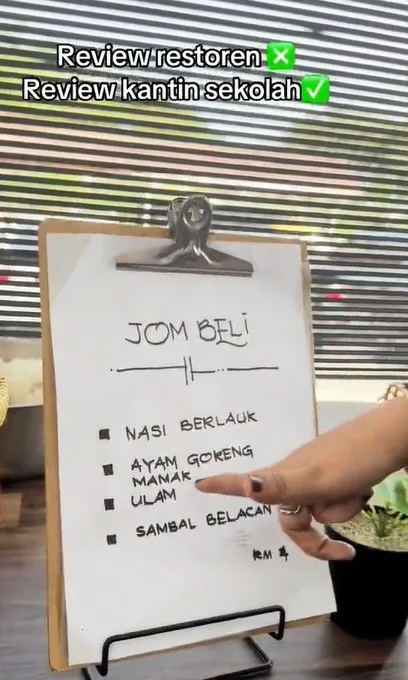 Review restoren ❎
Review kantin sekolah ✅
JOM BELi
NASI BERLAUK
AYAM GORENG
MAMAK
ULAM
SAMBAL BELACAN
RM 4